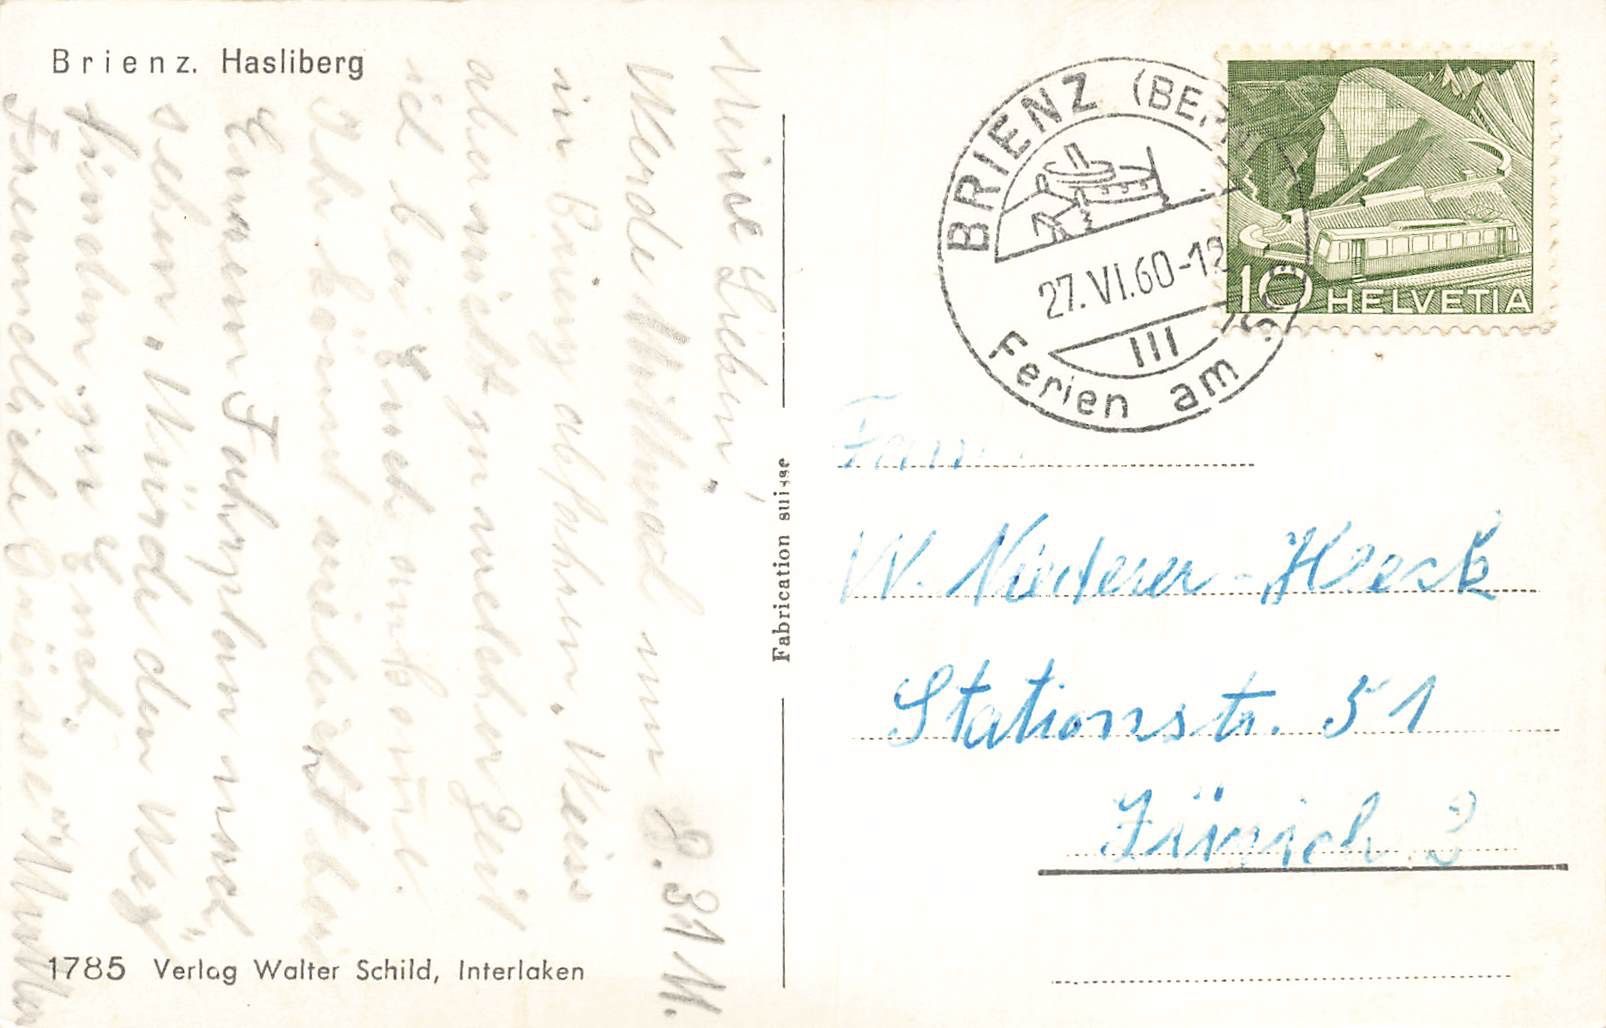 Brienz. Hasliberg
Meine Lieben,
Werde Mittwoch nun 8.31 M.
in Brienz abfahren. Weiss
aber nicht zu welcher Zeit
ich bei Euch ankomme.
Ihr könnt vielleicht bei
Eurem Fahrplan nach
sehen. Würde den Weg
finden zu Euch.
Freundliche Grüsse Mutter
1785 Verlag Walter Schild, Interlaken
Fabrication suisse
BRIENZ (BERN)
27.VI.60-12
III
Ferien am See
10 HELVETIA
Fam.
W. Niederer-Heeb
Stationstr. 51
Zürich 3